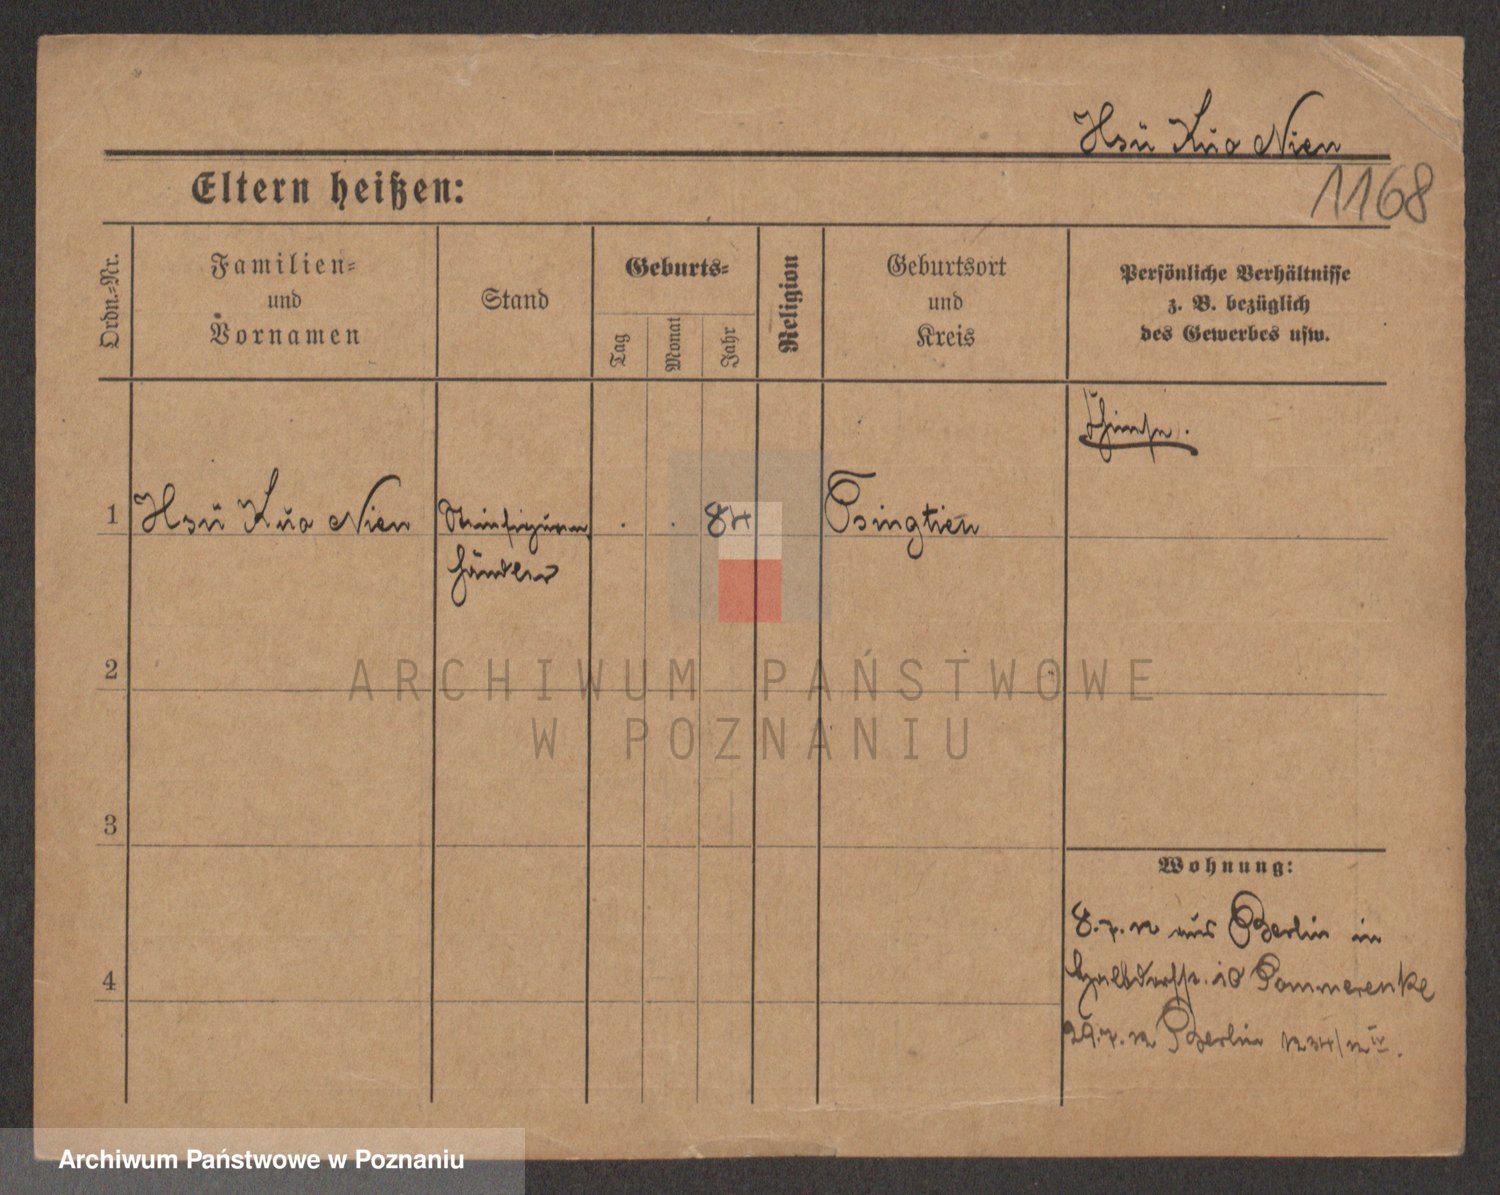 Hsü Kuo Nien
1168
Eltern heißen:
Ordn.-Nr.
Familien-
und
Vornamen
Stand
Geburts-
Tag
Monat
Jahr
Religion
Geburtsort
und
Kreis
Persönliche Verhältnisse
z. B. bezüglich
des Gewerbes usw.
Chinese.
1 Hsü Kuo Nien Steinfiguren . . 84 Tsingtien
händler
2
3
4
Wohnung:
8.7.12 aus Berlin in
10 Pommerenke
29.7.12 Berlin
ARCHIWUM PAŃSTWOWE
W POZNANIU
Archiwum Państwowe w Poznaniu